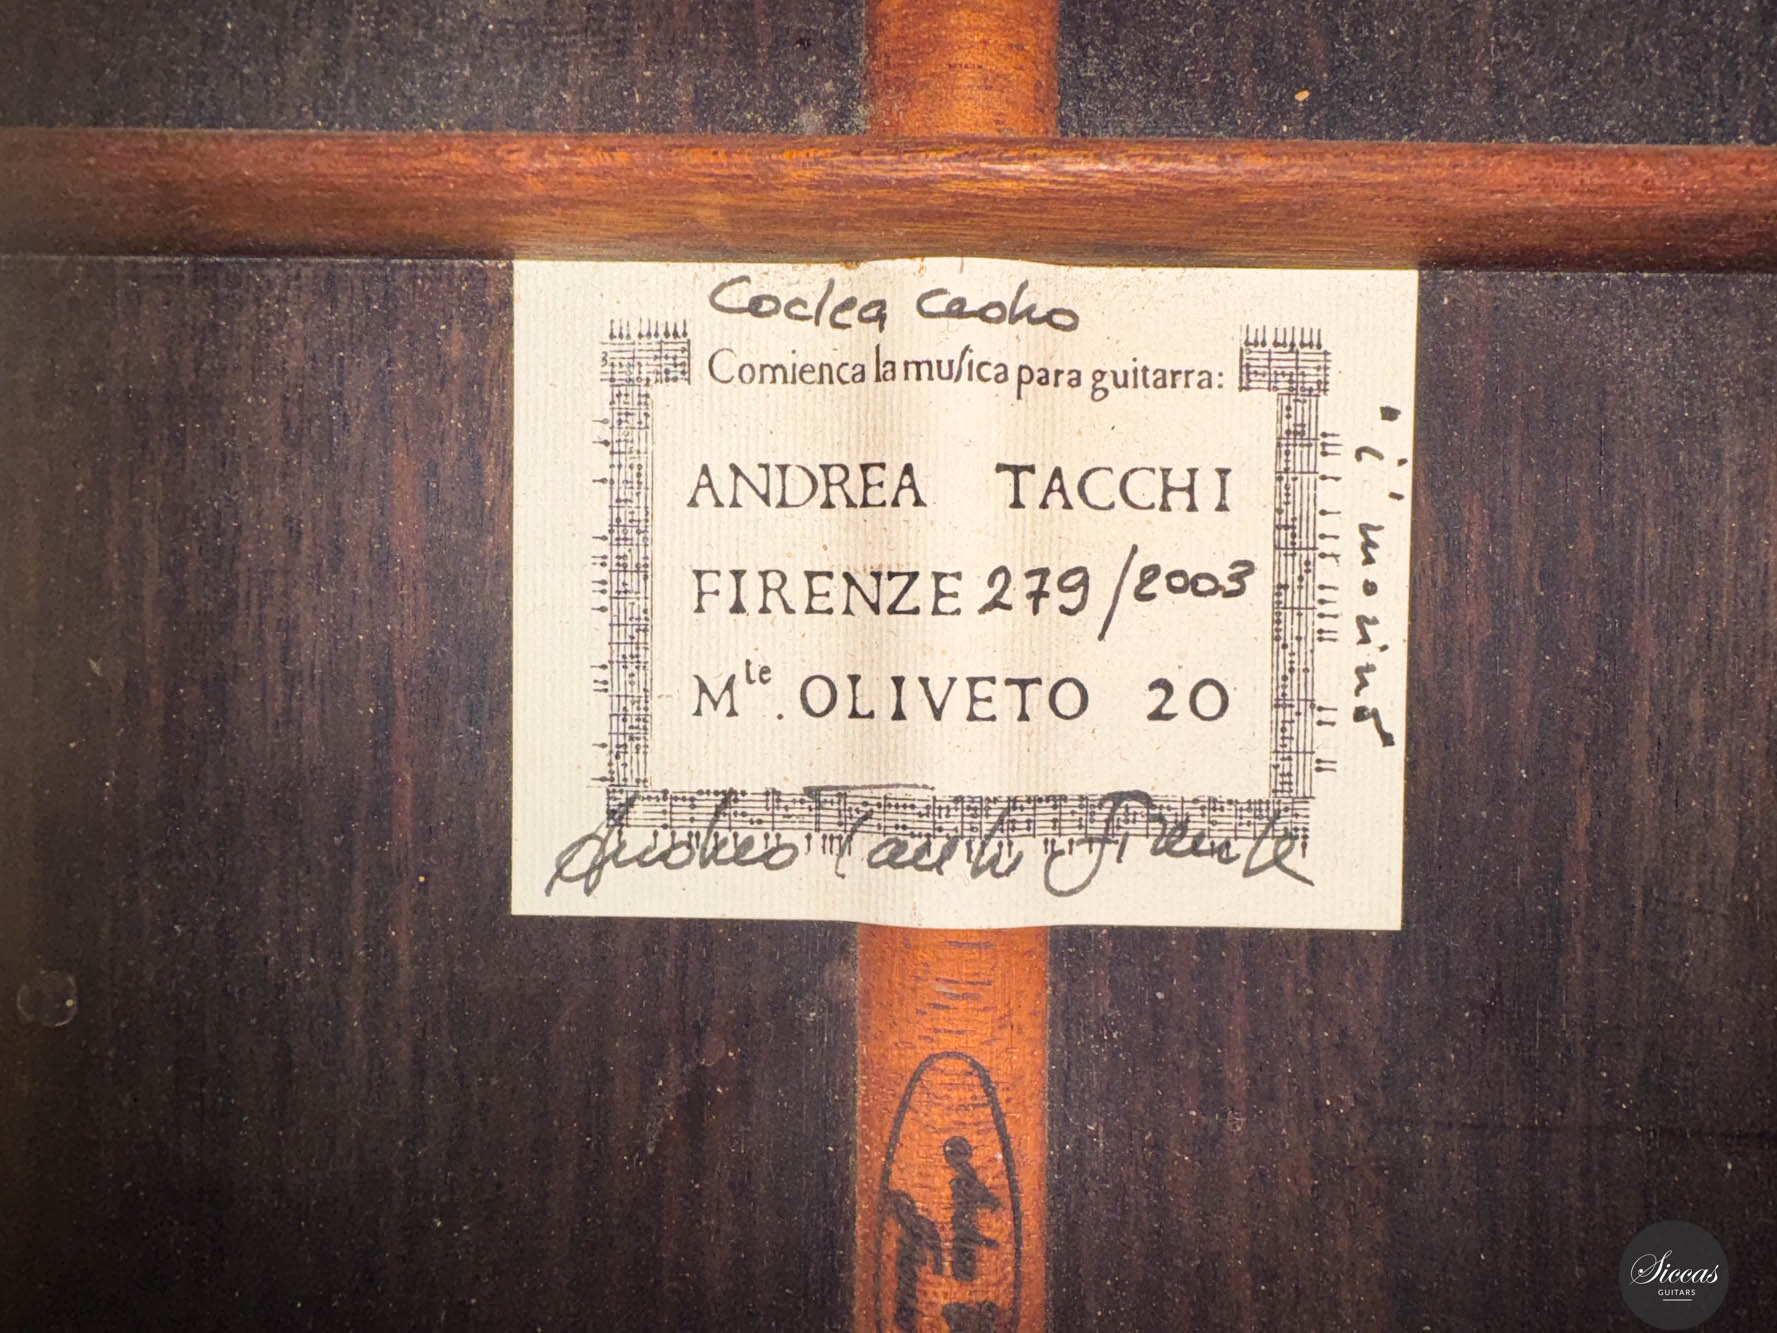 Coclea Cedro
Comienca la muſica para guitarra:
ANDREA TACCHI
FIRENZE 279/2003
Mte. OLIVETO 20
Andrea Tacchi Firenze
"il morino"
Siccas
GUITARS